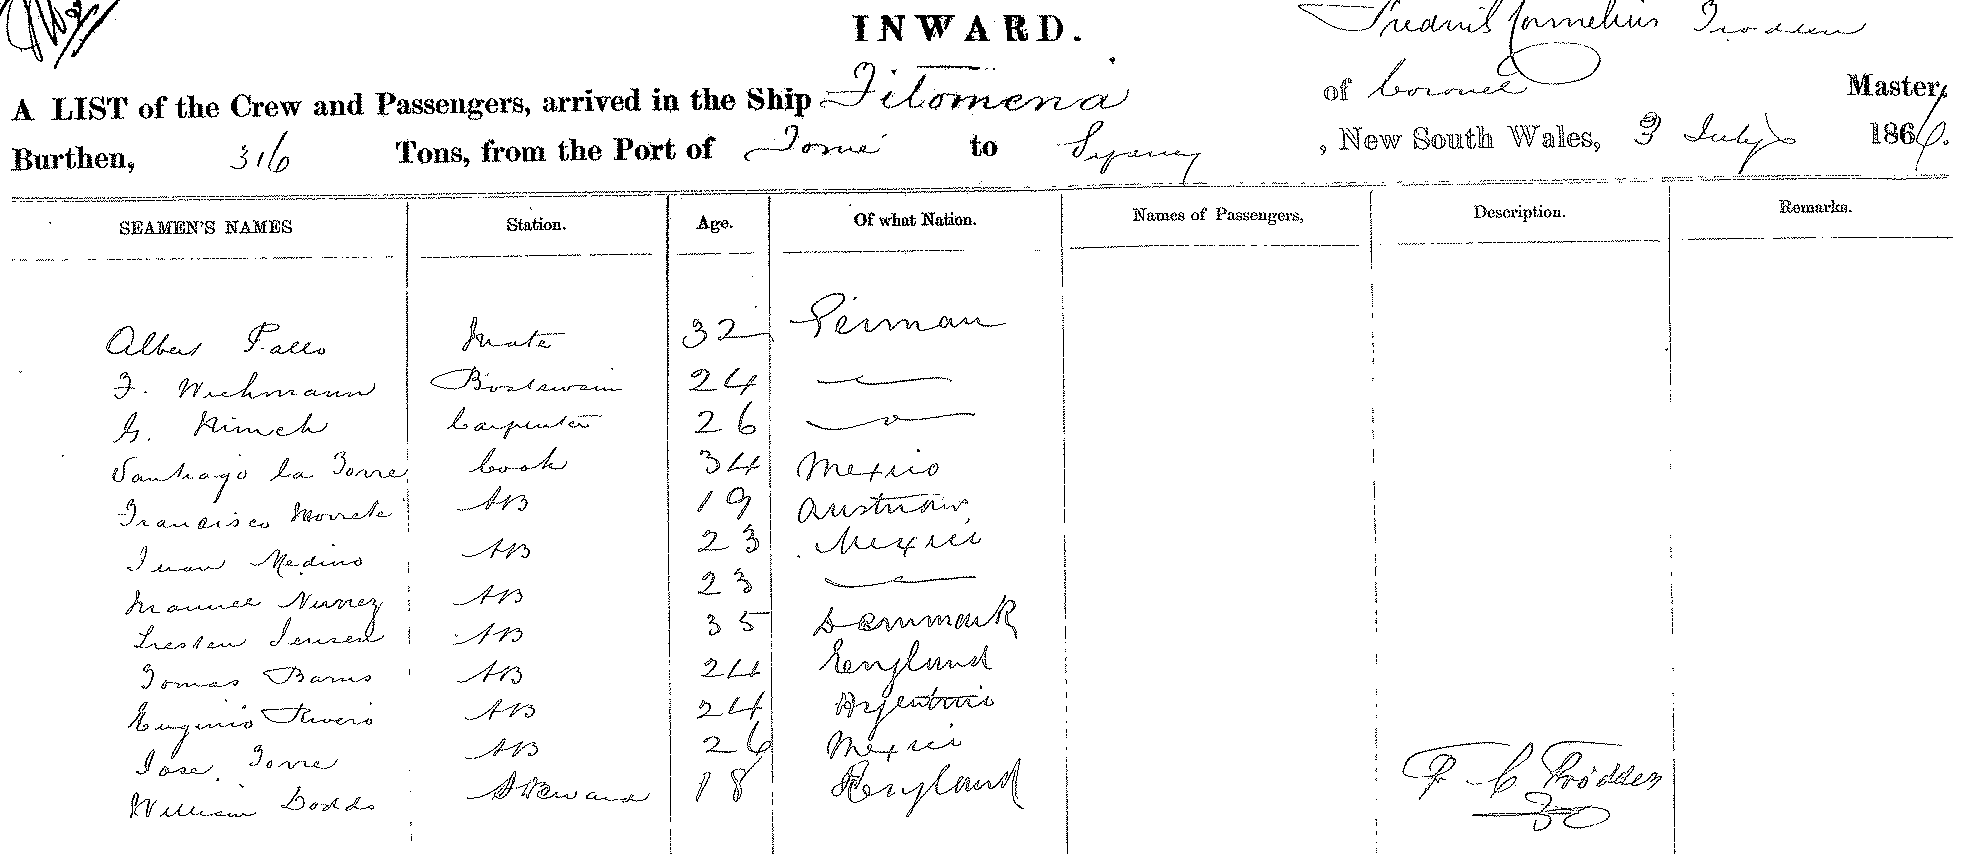 INWARD.
Fredrik Cornelius Trodden
A LIST of the Crew and Passengers, arrived in the Ship Filomena of Coronel Master,
Burthen, 316 Tons, from the Port of Tomé to Sydney, New South Wales, 3 July 1866.
SEAMEN'S NAMES Station. Age. Of what Nation. Names of Passengers, Description. Remarks.
Albert Mate 32 German
F. Wichmann Boatswain 24 —
G. 26 Carpenter —
Santiago la Torre Cook 34 Mexico
Francisco AB 19 Austrian
Juan Medino AB 23 Mexico
Manuel Nunez AB 23 —
Jensen AB 35 Denmark
Tomas Barns AB 24 England
Eugenio Rivero AB 24 Argentino
Jose Torre AB 26 Mexici
William Dodds Steward 18 England
F C Trödden